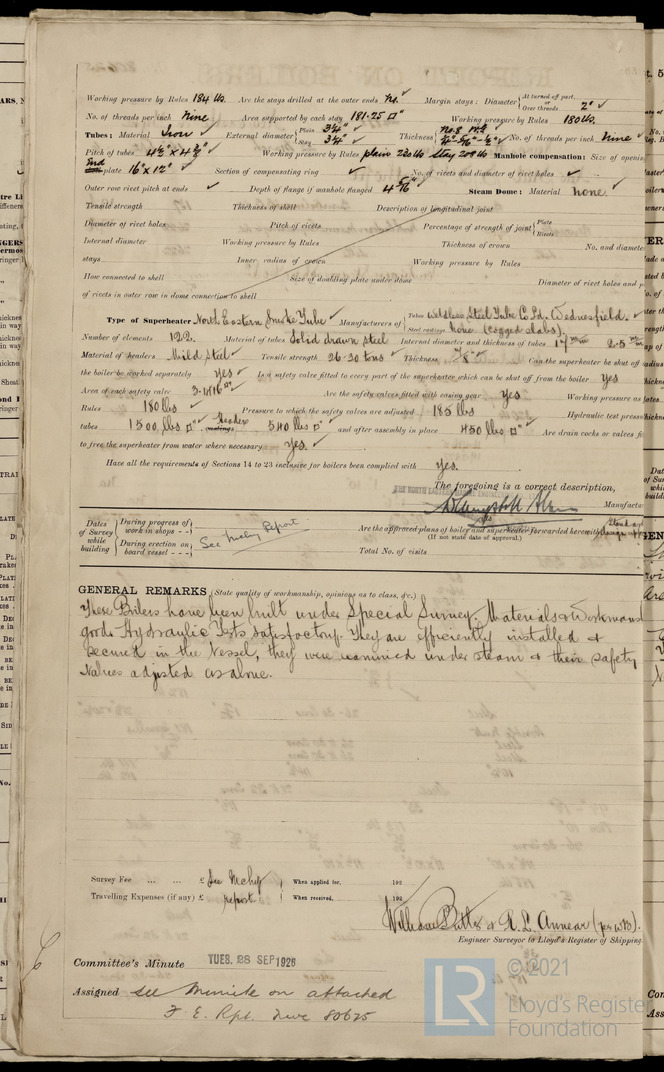 Working pressure by Rules 184 lbs. Are the stays drilled at the outer ends No. Margin stays: Diameter { At turned off part, Over threads 2"
No. of threads per inch Nine Area supported by each stay 181.25 □" Working pressure by Rules 180 lbs.
Tubes: Material Iron External diameter { Plain 3¼" Stay 3¼" Thickness { No. 8 No. of threads per inch Nine
Pitch of tubes 4½" x 4½" Working pressure by Rules plain 220 lbs stay 209 lbs Manhole compensation: Size of openin
End plate 16" x 12" Section of compensating ring No. of rivets and diameter of rivet holes
Outer row rivet pitch at ends Depth of flange if manhole flanged Steam Dome: Material None.
Tensile strength Thickness of shell Description of longitudinal joint
Diameter of rivet holes Pitch of rivets Percentage of strength of joint { Plate Rivets
Internal diameter Working pressure by Rules Thickness of crown No. and diamete
stays Inner radius of crown Working pressure by Rules
How connected to shell Size of doubling plate under dome Diameter of rivet holes and p
of rivets in outer row in dome connection to shell
Type of Superheater North Eastern Smoke Tube Manufacturers of { Tubes Weldless Steel Tube Co Ld. Wednesfield. Steel castings None (cogged slabs).
Number of elements 122. Material of tubes Solid drawn steel Internal diameter and thickness of tubes 17 m/m 2.5 m/m
Material of headers Mild Steel Tensile strength 26-30 tons Thickness Can the superheater be shut off
the boiler be worked separately Yes Is a safety valve fitted to every part of the superheater which can be shut off from the boiler Yes
Area of each safety valve Are the safety valves fitted with easing gear Yes Working pressure as
Rules 180 lbs Pressure to which the safety valves are adjusted 185 lbs Hydraulic test press
tubes 1500 lbs □" Header castings 540 lbs □" and after assembly in place 450 lbs □" Are drain cocks or valves fi
to free the superheater from water where necessary Yes.
Have all the requirements of Sections 14 to 23 inclusive for boilers been complied with Yes.
The foregoing is a correct description,
Manufactu
Dates of Survey while building { During progress of work in shops - - During erection on board vessel - - - } See Mchy Report
Are the approved plans of boiler and superheater forwarded herewith
(If not state date of approval.)
Total No. of visits
GENERAL REMARKS (State quality of workmanship, opinions as to class, &c.)
These Boilers have been built under Special Survey; Materials & Workmans
good; Hydraulic Tests satisfactory. They are efficiently installed &
secured in the Vessel, they were examined under steam & their safety
Valves adjusted as above.
Survey Fee ... ... £ See Mchy When applied for, 192
Travelling Expenses (if any) £ report. When received, 192
William Butler & R. L. Annear (per WB).
Engineer Surveyor to Lloyd's Register of Shipping
Committee's Minute TUES. 28 SEP 1926
Assigned See Minute on attached
F. E. Rpt. Nwc 80625
LR © 2021
Lloyd's Register
Foundation